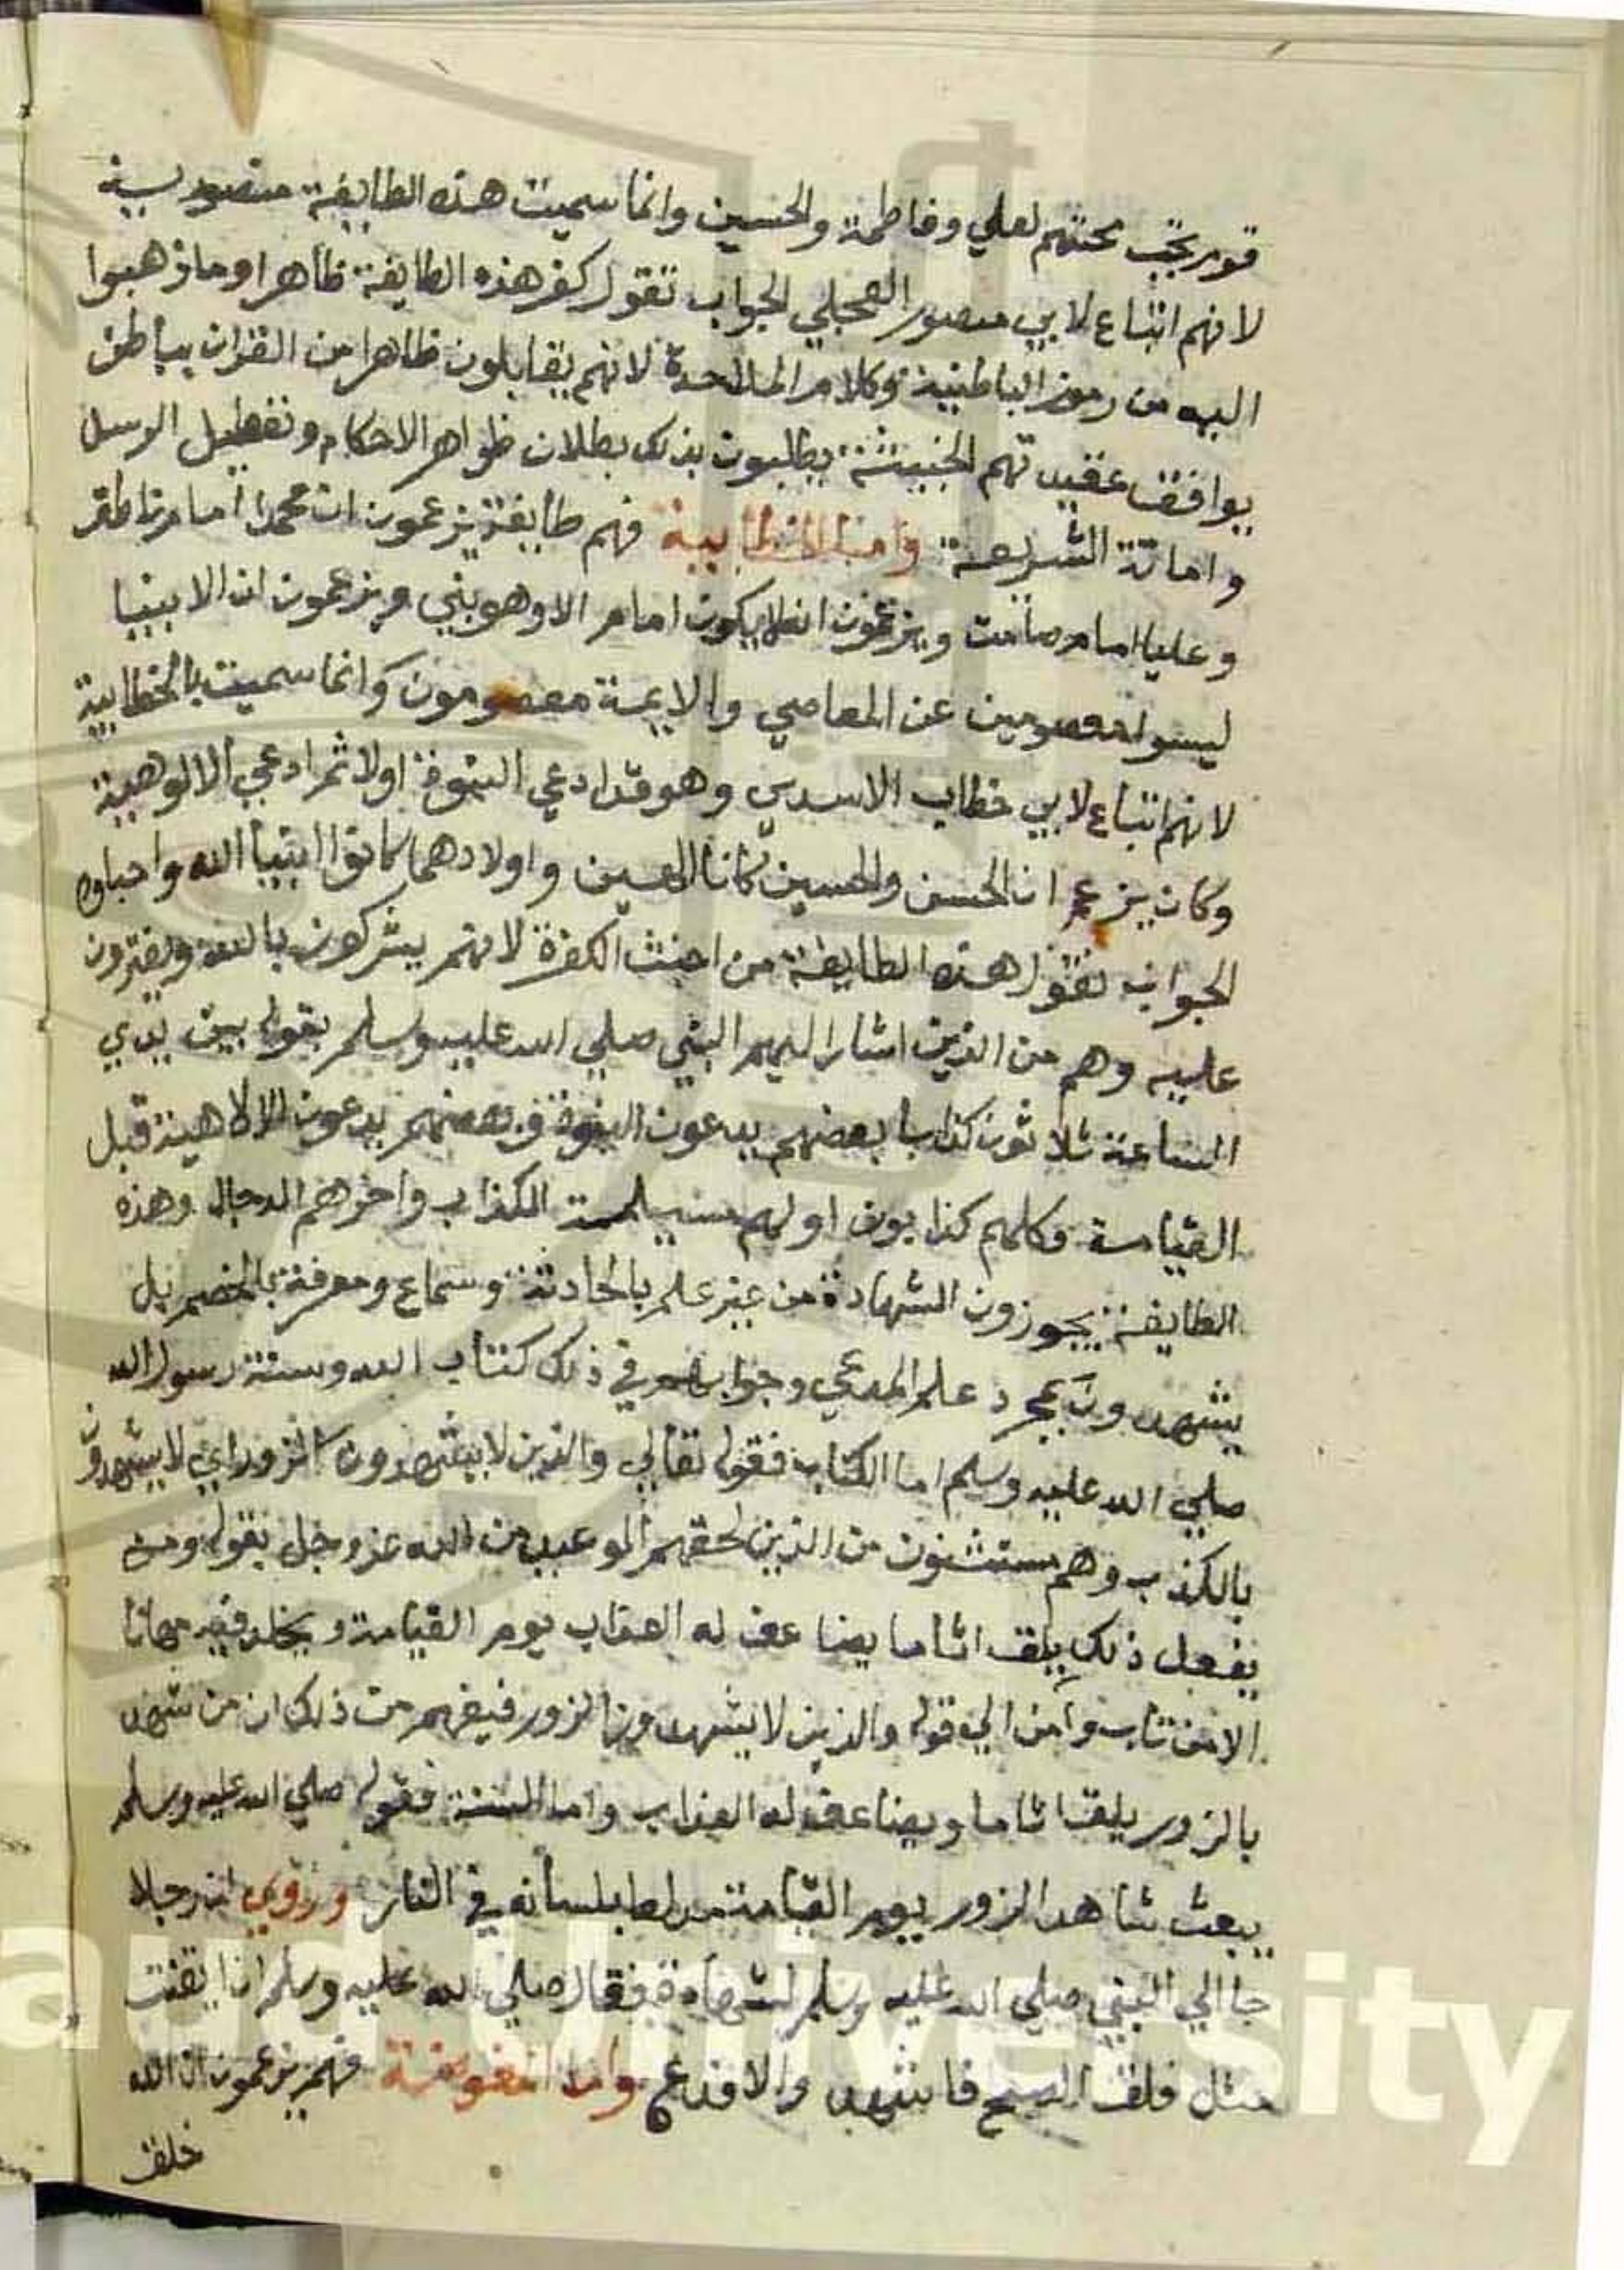 قوم يجب محبتهم لعلي وفاطمة والحسين وانما سميت هذه الطايفة منصورية
لانهم اتباع لابي منصور العجلي الجواب نقول كفر هذه الطايفة ظاهرا وما ذهبوا
اليه من رموز الباطنية وكلام الملاحدة لانهم يقابلون ظاهرا من القران بباطن
يوافق عقيدتهم الخبيثة يطلبون بذلك بطلان ظواهر الاحكام وتعطيل الرسل
واماتة الشريعة واما الخطابية فهم طايفة يزعمون ان محمدا امام ناطق
وعليا امام صامت ويزعمون انه لا يكون امام الا وهو نبي ويزعمون ان الانبيا
ليسوا معصومين عن المعاصي والايمة معصومون وانما سميت بالخطابية
لانهم اتباع لابي خطاب الاسدي وهو قد ادعي النبوة اولا ثم ادعي الالوهية
وكان يزعم ان الحسن والحسين كانا الهين واولادهما كانوا ابنيا الله واحباوه
الجواب نقول هذه الطايفة من اخبث الكفرة لانهم يشركون بالله ويفترون
عليه وهم من الذين اشار اليهم النبي صلي الله عليه وسلم بقوله بين يدي
الساعة ثلاثون كذابا بعضهم يدعون النبوة وبعضهم يدعون الالاهية قبل
القيامة وكلهم كذابون اولهم مسيلمة الكذاب واخرهم الدجال وهذه
الطايفة يجوزون الشهادة من غير علم بالحادثة وسماع ومعرفة بالخصم بل
يشهدون بمجرد علم المدعي وجوابهم في ذلك كتاب الله وسنة رسول الله
صلي الله عليه وسلم اما الكتاب فقوله تعالي والذين لا يشهدون الزور اي لا يشهدون
بالكذب وهم مستثنون من الذين لحقهم الوعيد من الله عز وجل بقوله ومن
يفعل ذلك يلق اثاما يضاعف له العذاب يوم القيامة ويخلد فيه مهانا
الا من تاب وامن الي قوله والذين لا يشهدون الزور فيفهم من ذلك ان من شهد
بالزور يلق اثاما ويضاعف له العذاب واما السنة فقوله صلي الله عليه وسلم
يبعث شاهد الزور يوم القيامة مدلعا بلسانه في النار وروي ان رجلا
جا الي النبي صلي الله عليه وسلم لشهادة فقال صلي الله عليه وسلم اذا ايقنت
مثل فلق الصبح فاشهد والا فدع واما المفوضة فهم يزعمون ان الله
خلق
aud University